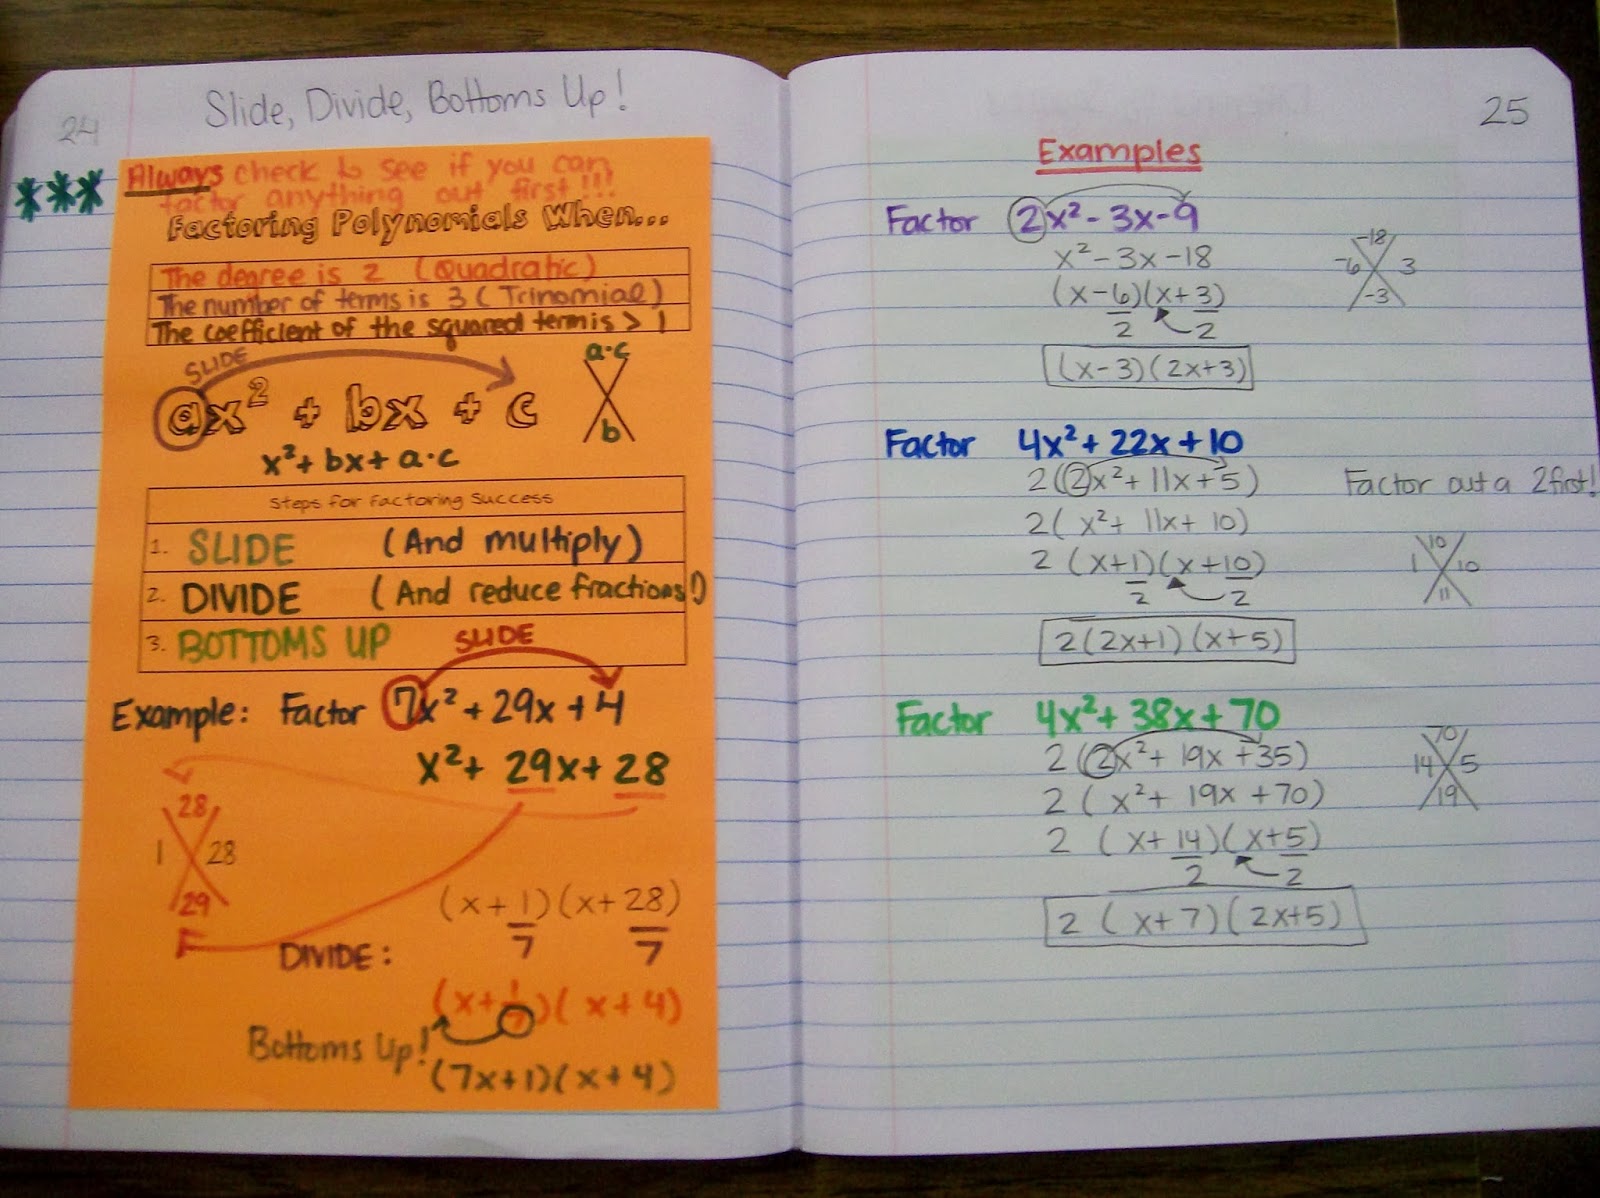 24
Slide, Divide, Bottoms Up!
*** Always check to see if you can
factor anything out first!!!
Factoring Polynomials When...
The degree is 2 (Quadratic)
The number of terms is 3 (Trinomial)
The coefficient of the squared term is > 1
SLIDE
ax² + bx + c
a·c
b
x² + bx + a·c
Steps for Factoring Success
1. SLIDE (And multiply)
2. DIVIDE (And reduce fractions!)
3. BOTTOMS UP
SLIDE
Example: Factor 7x² + 29x + 4
x² + 29x + 28
28
1 28
29
(x + 1/7)(x + 28/7)
DIVIDE:
(x + 1/7)(x + 4)
Bottoms Up!
(7x+1)(x+4)
25
Examples
Factor 2x² - 3x - 9
x² - 3x - 18
-18
-6 3
-3
(x - 6/2)(x + 3/2)
(x-3)(2x+3)
Factor 4x² + 22x + 10
2(2x² + 11x + 5) Factor out a 2 first!
2(x² + 11x + 10)
10
1 10
11
2(x + 1/2)(x + 10/2)
2(2x+1)(x+5)
Factor 4x² + 38x + 70
2(2x² + 19x + 35)
70
14 5
19
2(x² + 19x + 70)
2(x + 14/2)(x + 5/2)
2(x+7)(2x+5)